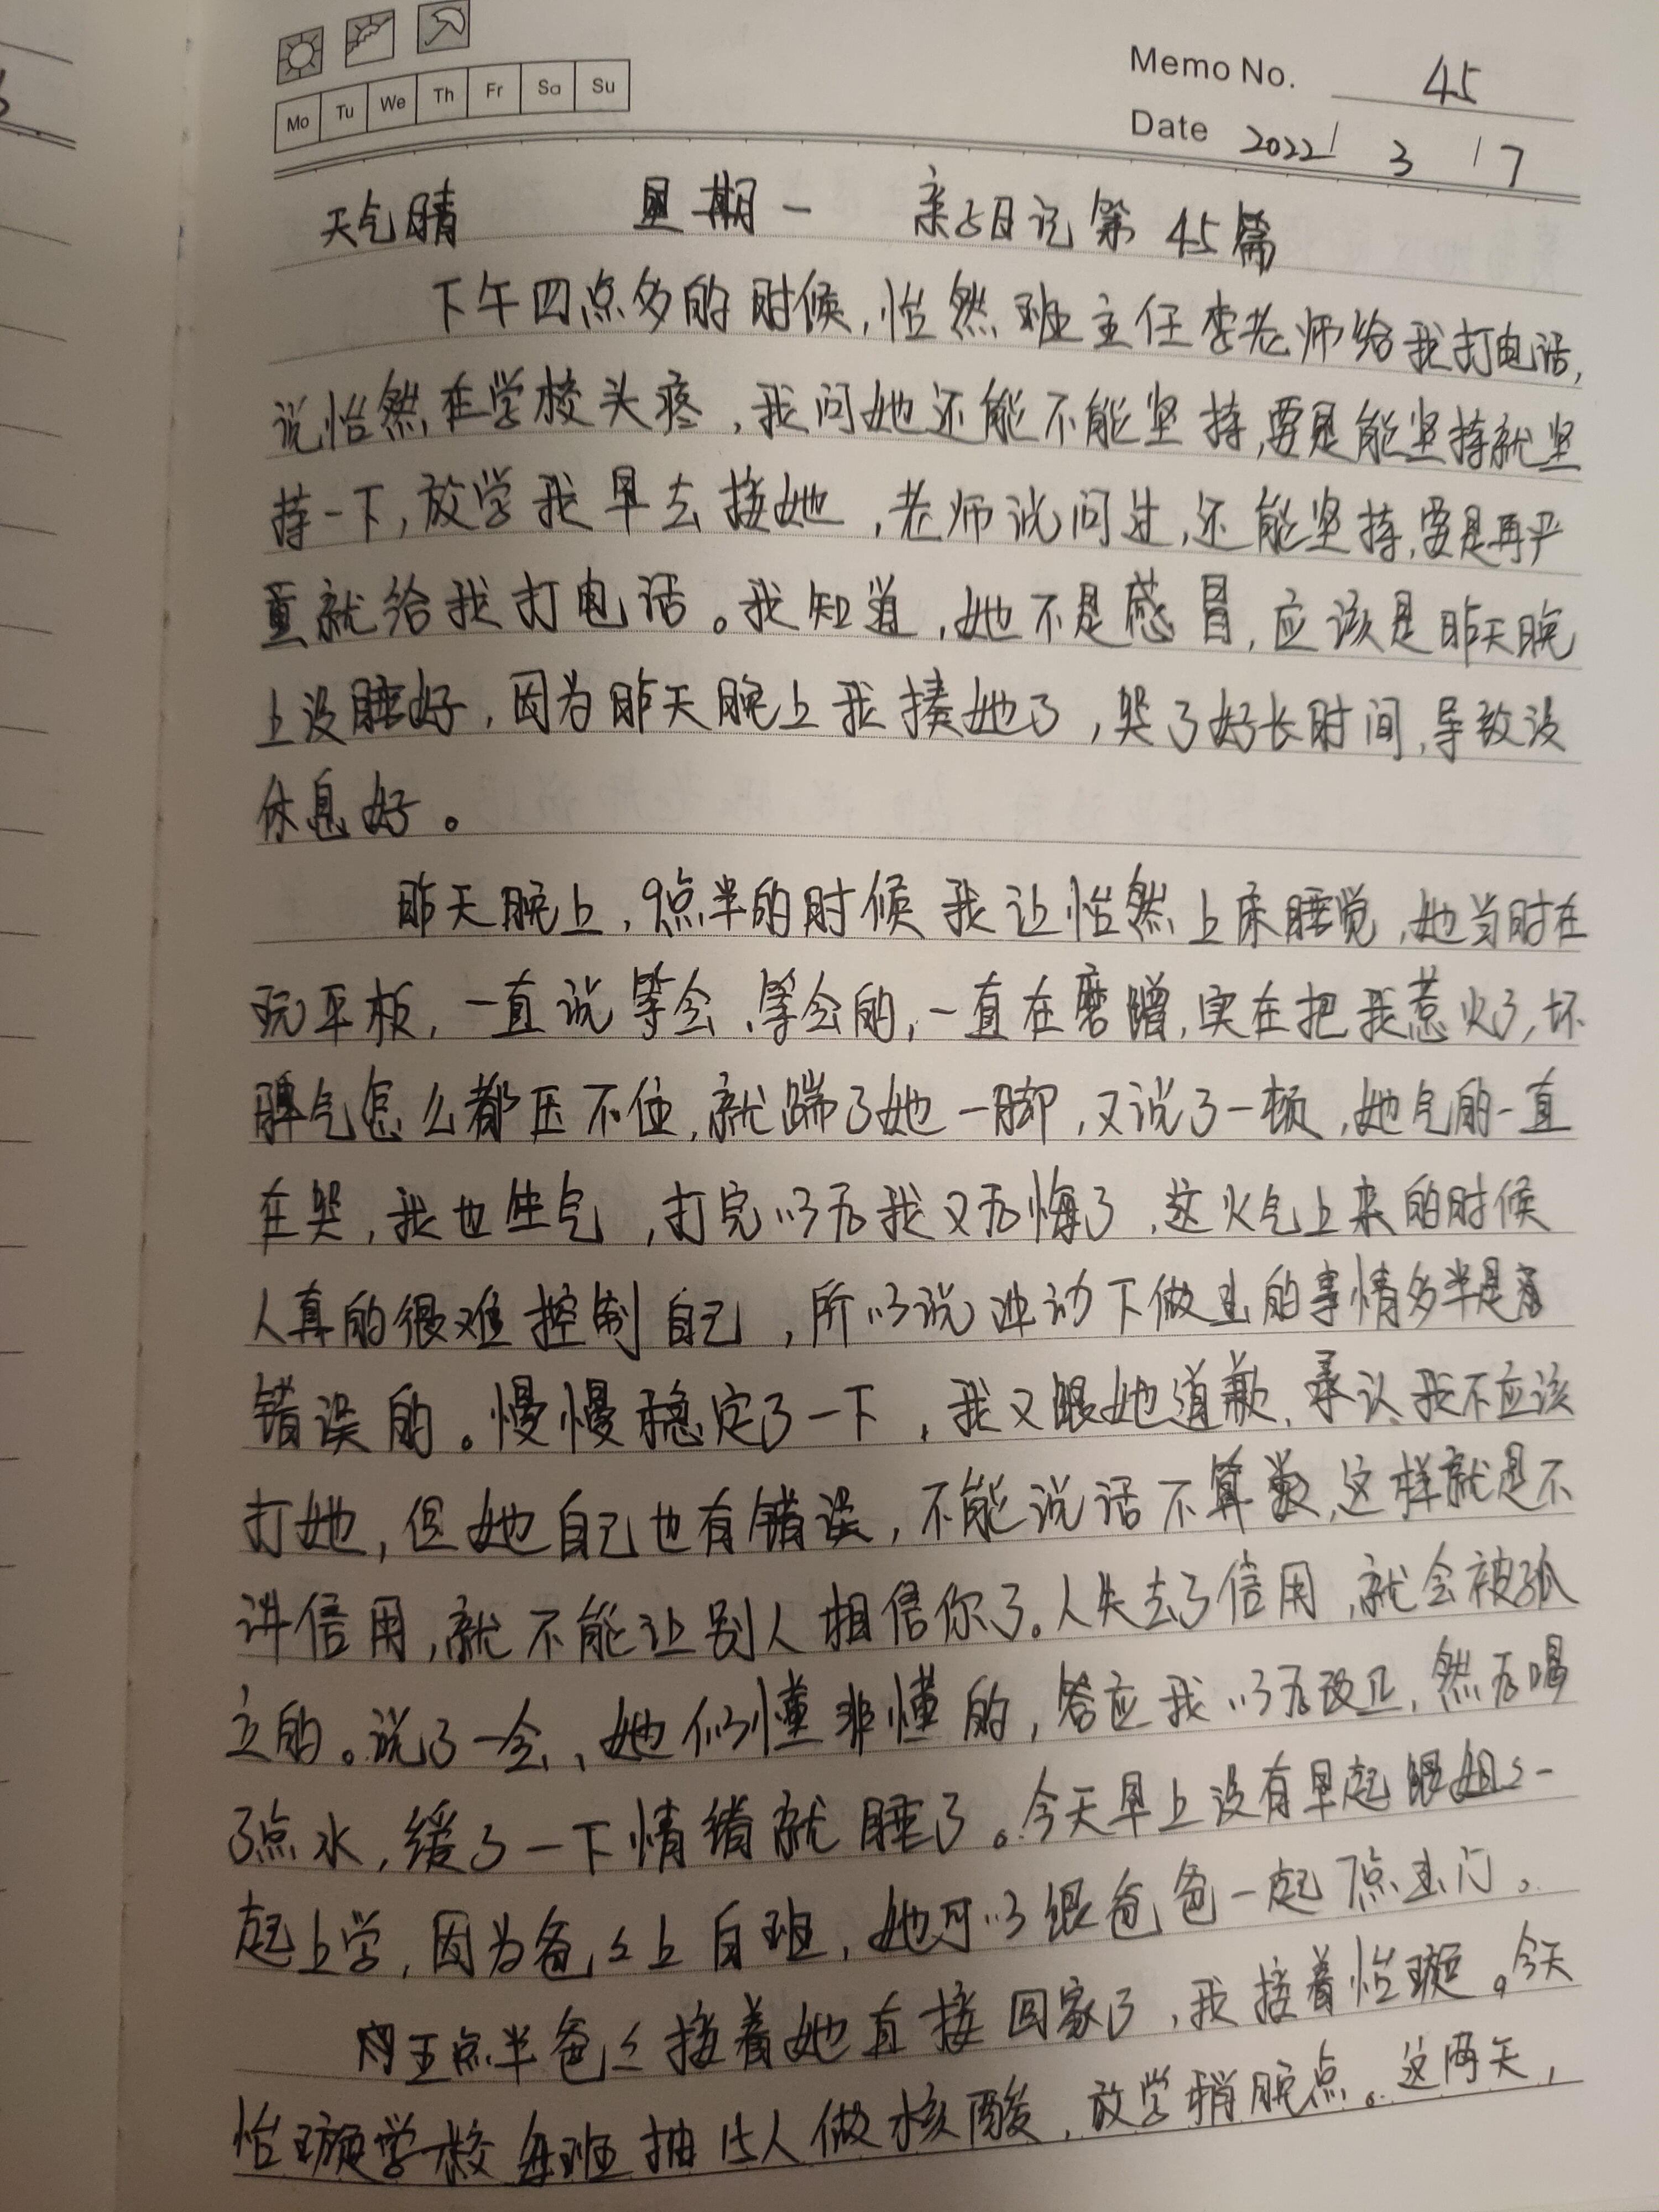 Memo No. 45
Mo Tu We Th Fr Sa Su
Date 2022 / 3 / 7
天气晴 星期一 亲子日记第45篇
下午四点多的时候,怡然班主任李老师给我打电话,
说怡然在学校头疼,我问她还能不能坚持,要是能坚持就坚
持一下,放学我早去接她,老师说问过,还能坚持,要是再严
重就给我打电话。我知道,她不是感冒,应该是昨天晚
上没睡好,因为昨天晚上我揍她了,哭了好长时间,导致没
休息好。
昨天晚上,9点半的时候我让怡然上床睡觉,她当时在
玩平板,一直说等会、等会的,一直在磨蹭,实在把我惹火了,坏
脾气怎么都压不住,就踹了她一脚,又说了一顿,她气的一直
在哭,我也生气,打完以后我又后悔了,这火气上来的时候
人真的很难控制自己,所以说冲动下做出的事情多半是
错误的。慢慢稳定了一下,我又跟她道歉,承认我不应该
打她,但她自己也有错误,不能说话不算数,这样就是不
讲信用,就不能让别人相信你了。人失去了信用,就会被孤
立的。说了一会,她似懂非懂的,答应我以后改正,然后喝
了点水,缓了一下情绪就睡了。今天早上没有早起跟姐姐一
起上学,因为爸爸上白班,她可以跟爸爸一起7点出门。
五点半爸爸接着她直接回家了,我接着怡璇。今天
怡璇学校每班抽15人做核酸,放学稍晚点。这两天,